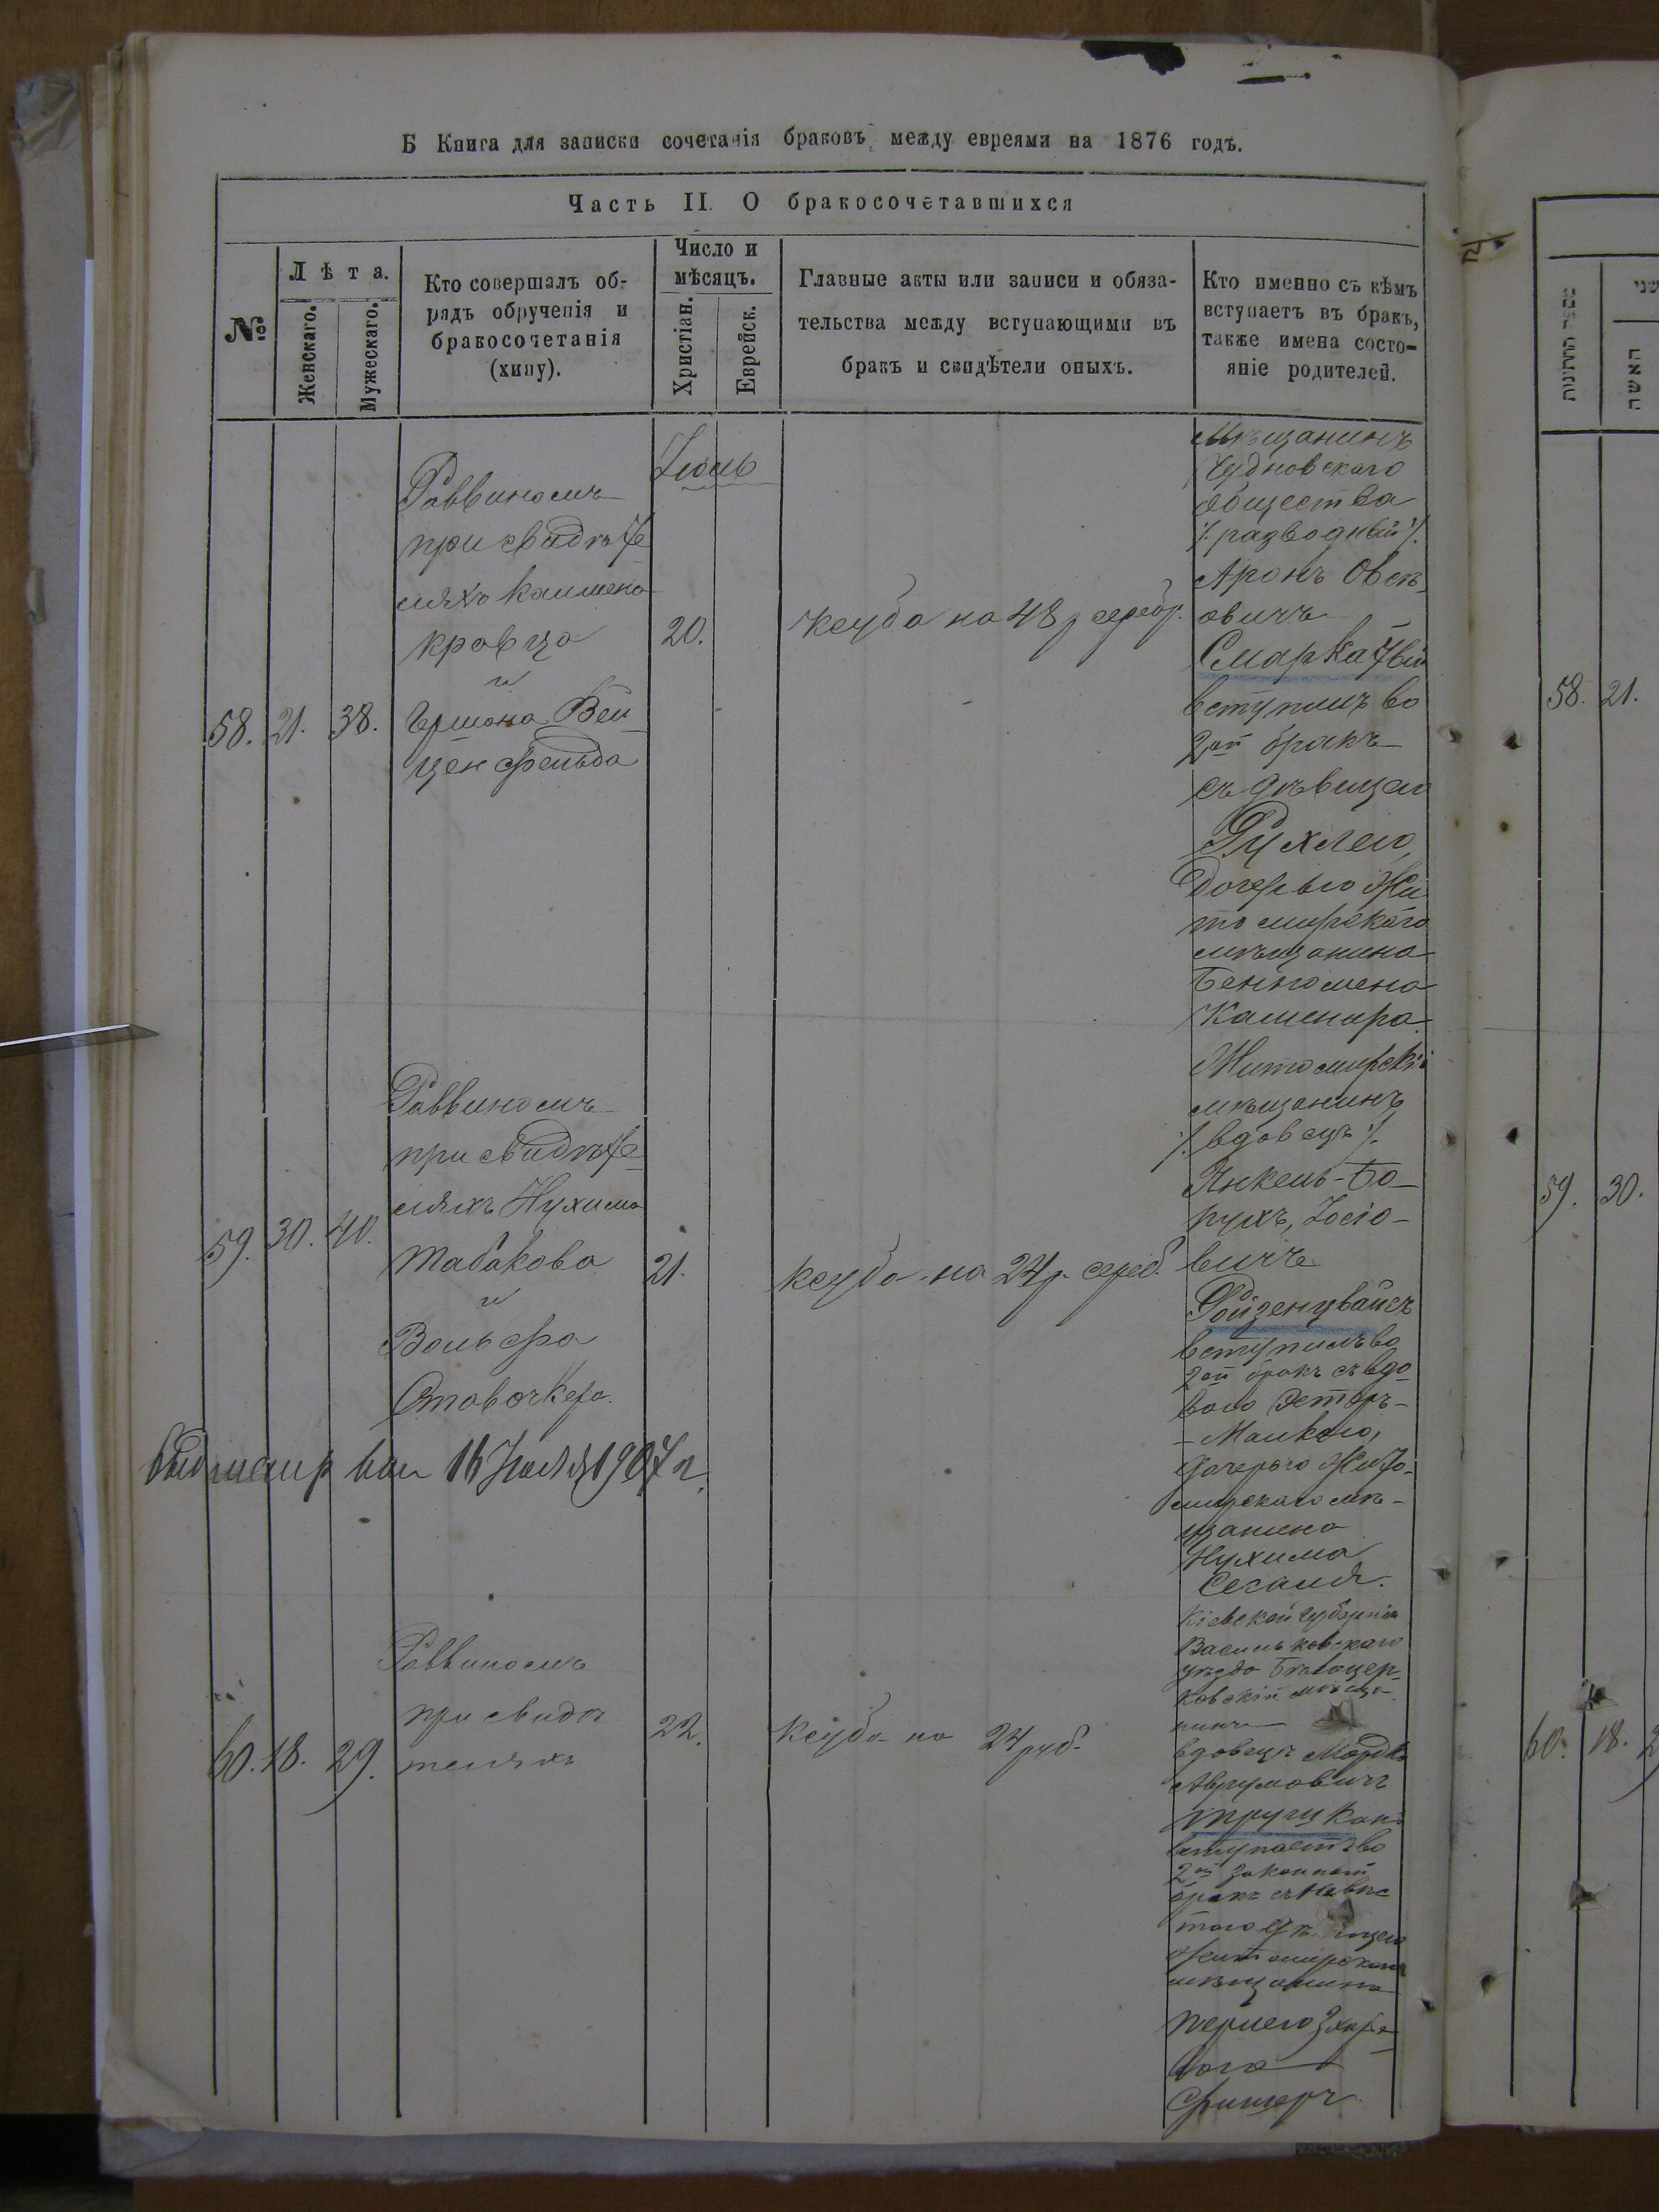 Б Книга для записки сочетанія браковъ между евреями на 1876 годъ.
Часть II. О бракосочетавшихся
№
Лѣта.
Женскаго.
Мужескаго.
Кто совершалъ об-
рядъ обрученія и
бракосочетанія
(хипу).
Число и
мѣсяцъ.
Христіан.
Еврейск.
Главные акты или записи и обяза-
тельства между вступающими въ
бракъ и свидѣтели оныхъ.
Кто именно съ кѣмъ
вступаетъ въ бракъ,
также имена состо-
яніе родителей.
58. 21. 38.
Раввиномъ
при свидѣте
ляхъ
кравца
и
Гершона Вей
ценфельда
20.
Ксуба на 48 р серебр.
Мѣщанинъ
Чудновскаго
общества
/: разводный :/
Аронъ Овсѣ
овичъ
вступилъ во
2ой бракъ
съ дѣвицею
Рухлею,
дочерью Жи
томирскаго
мѣщанина
59. 30. 40.
Раввиномъ
при свидѣте
ляхъ Нухима
Табакова
и
Вольфа
Ставочкера.
21.
Ксуба на 24 р. сереб.
Житомирскій
мѣщанинъ
/: вдовецъ :/
Янкель-Бо-
рухъ, Іосіо-
вичъ
Ройзенцвайгъ
вступилъ во
2ой бракъ съ вдо
вою Эстеръ-
-Малкою,
дочерью Жито-
мирскаго мѣ-
щанина
Нухима
Сегаля.
16 Іюля 1907 г.
60. 18. 29.
Раввиномъ
при свидѣ
теляхъ
22.
Ксуба на 24 руб.
Кіевской губерніи
Васильковскаго
уѣзда Бѣлоцер
ковскій мѣща
нинъ
вдовецъ Мордко
Аврумовичъ
вступаетъ во
2ой законный
бракъ съ
Житомирскаго
мѣщанина
Перлею
Фишеръ
58. 21.
59. 30.
60. 18. 2
האשה